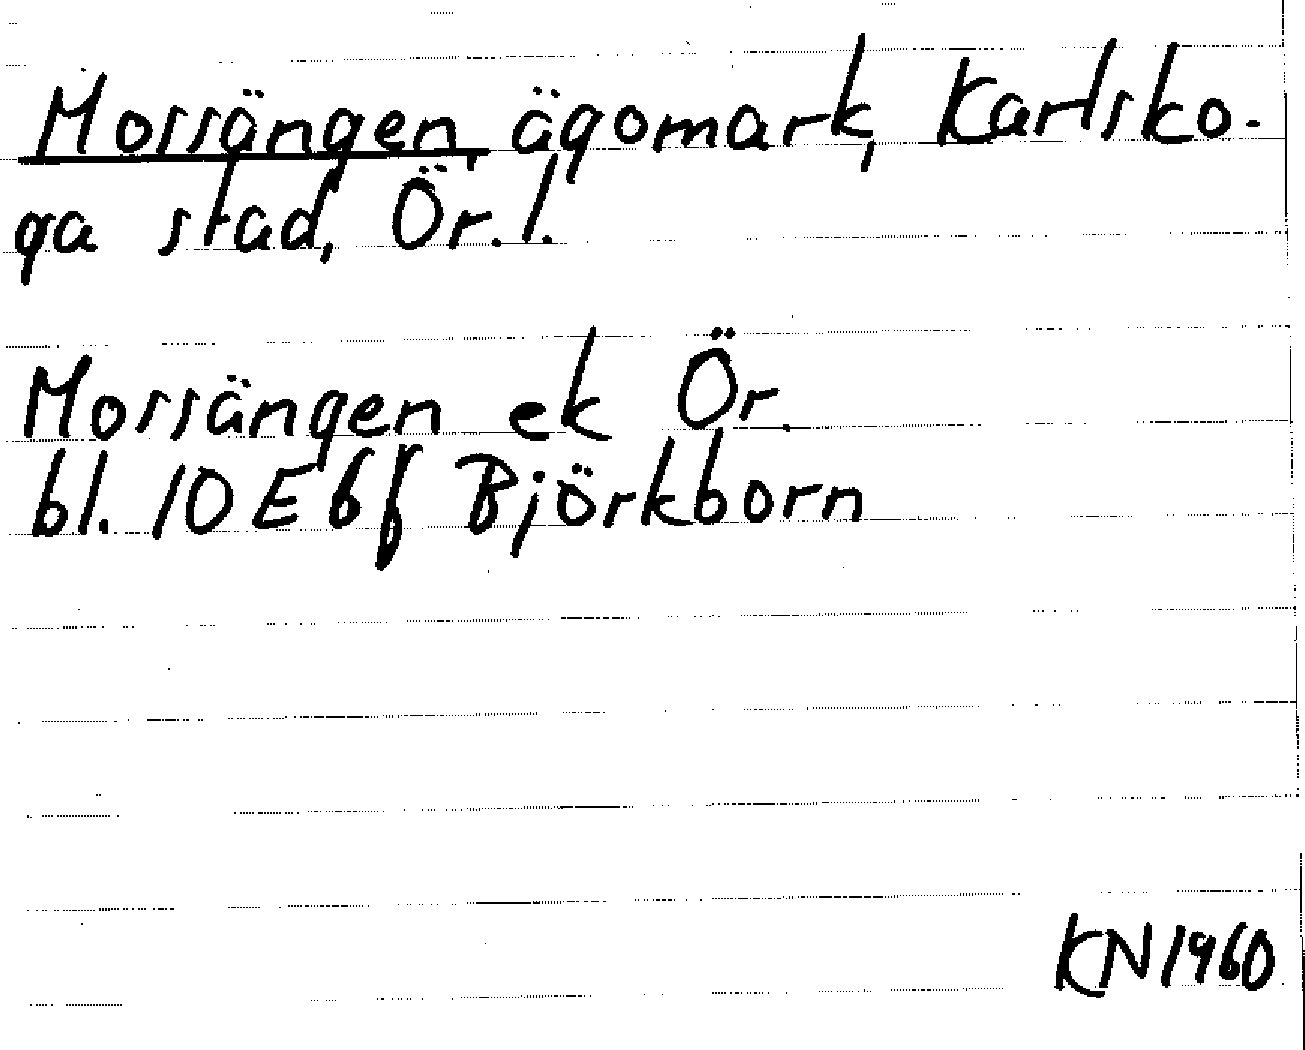 Mossängen, ägomark, Karlsko-
ga stad, Ör. l.
Mossängen ek Ör.
bl. 10E6f Björkborn
KN1960